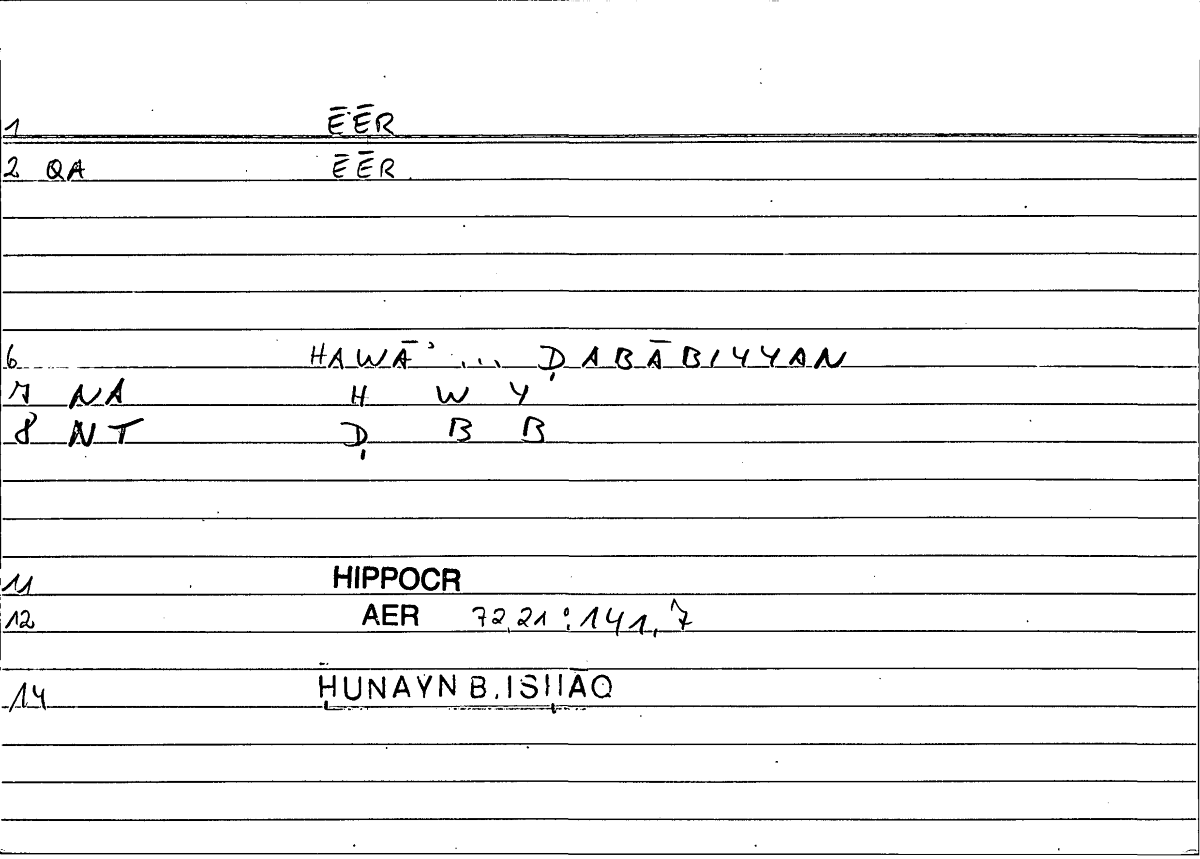 1 ĒĒR
2 QA ĒĒR
6 HAWĀʾ ... ḌABĀBIYYAN
7 NA H W Y
8 NT Ḍ B B
11 HIPPOCR
12 AER 72,21 : 141,7
14 ḤUNAYN B. ISḤĀQ